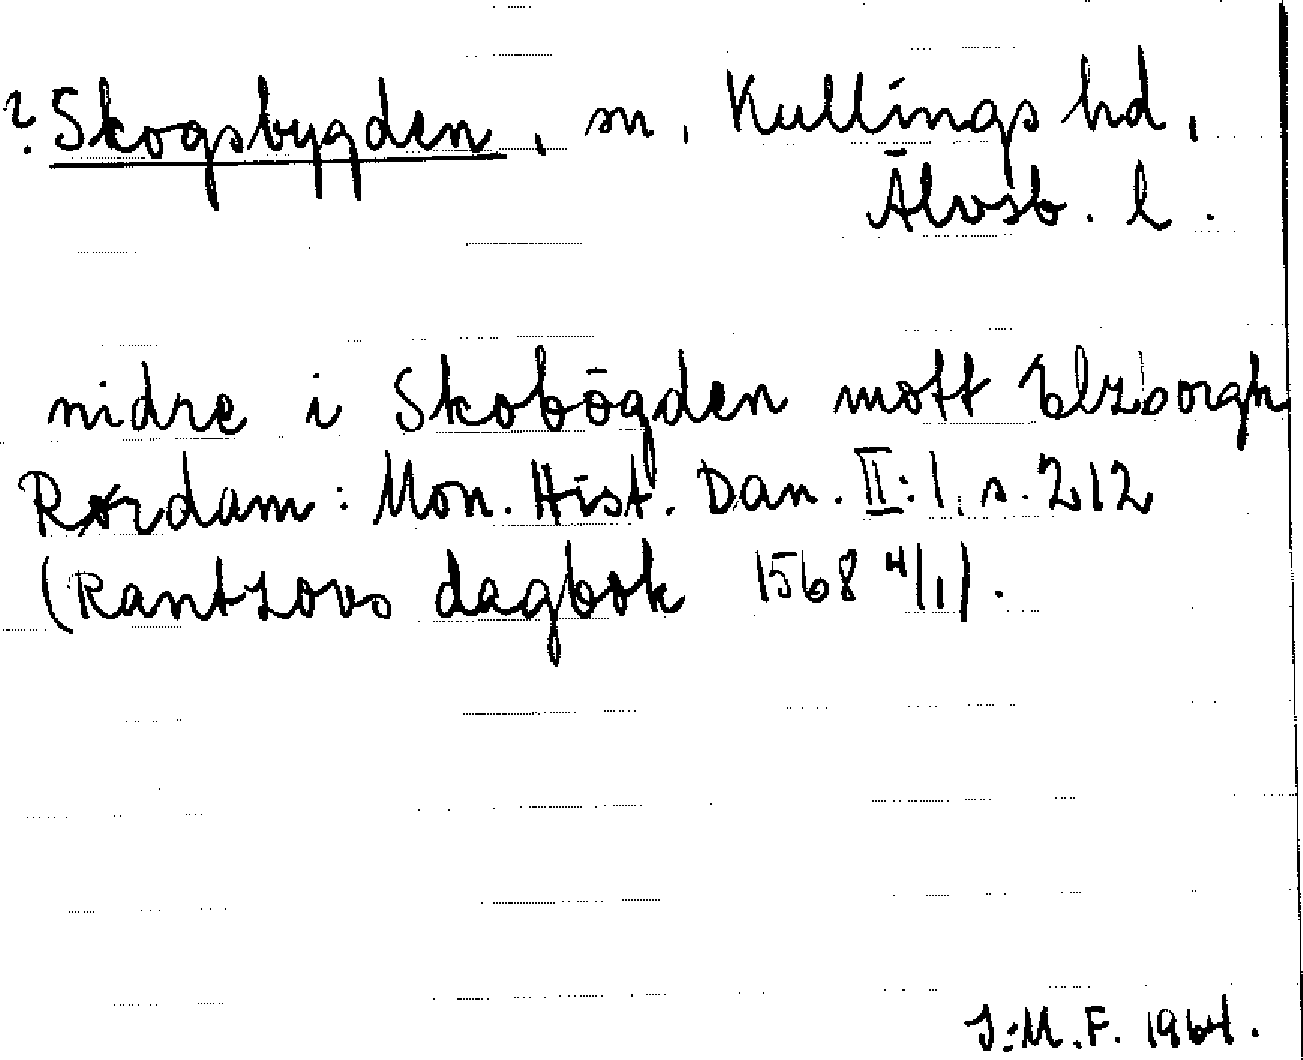 ? Skogsbygden, sn, Kullings hd,
Älvsb. l.
nidre i Skobögden mott Elzborgh
Rørdam: Mon. Hist. Dan. II:1, s. 212
(Rantzovs dagbok 1568 4/1).
I:M.F. 1964.